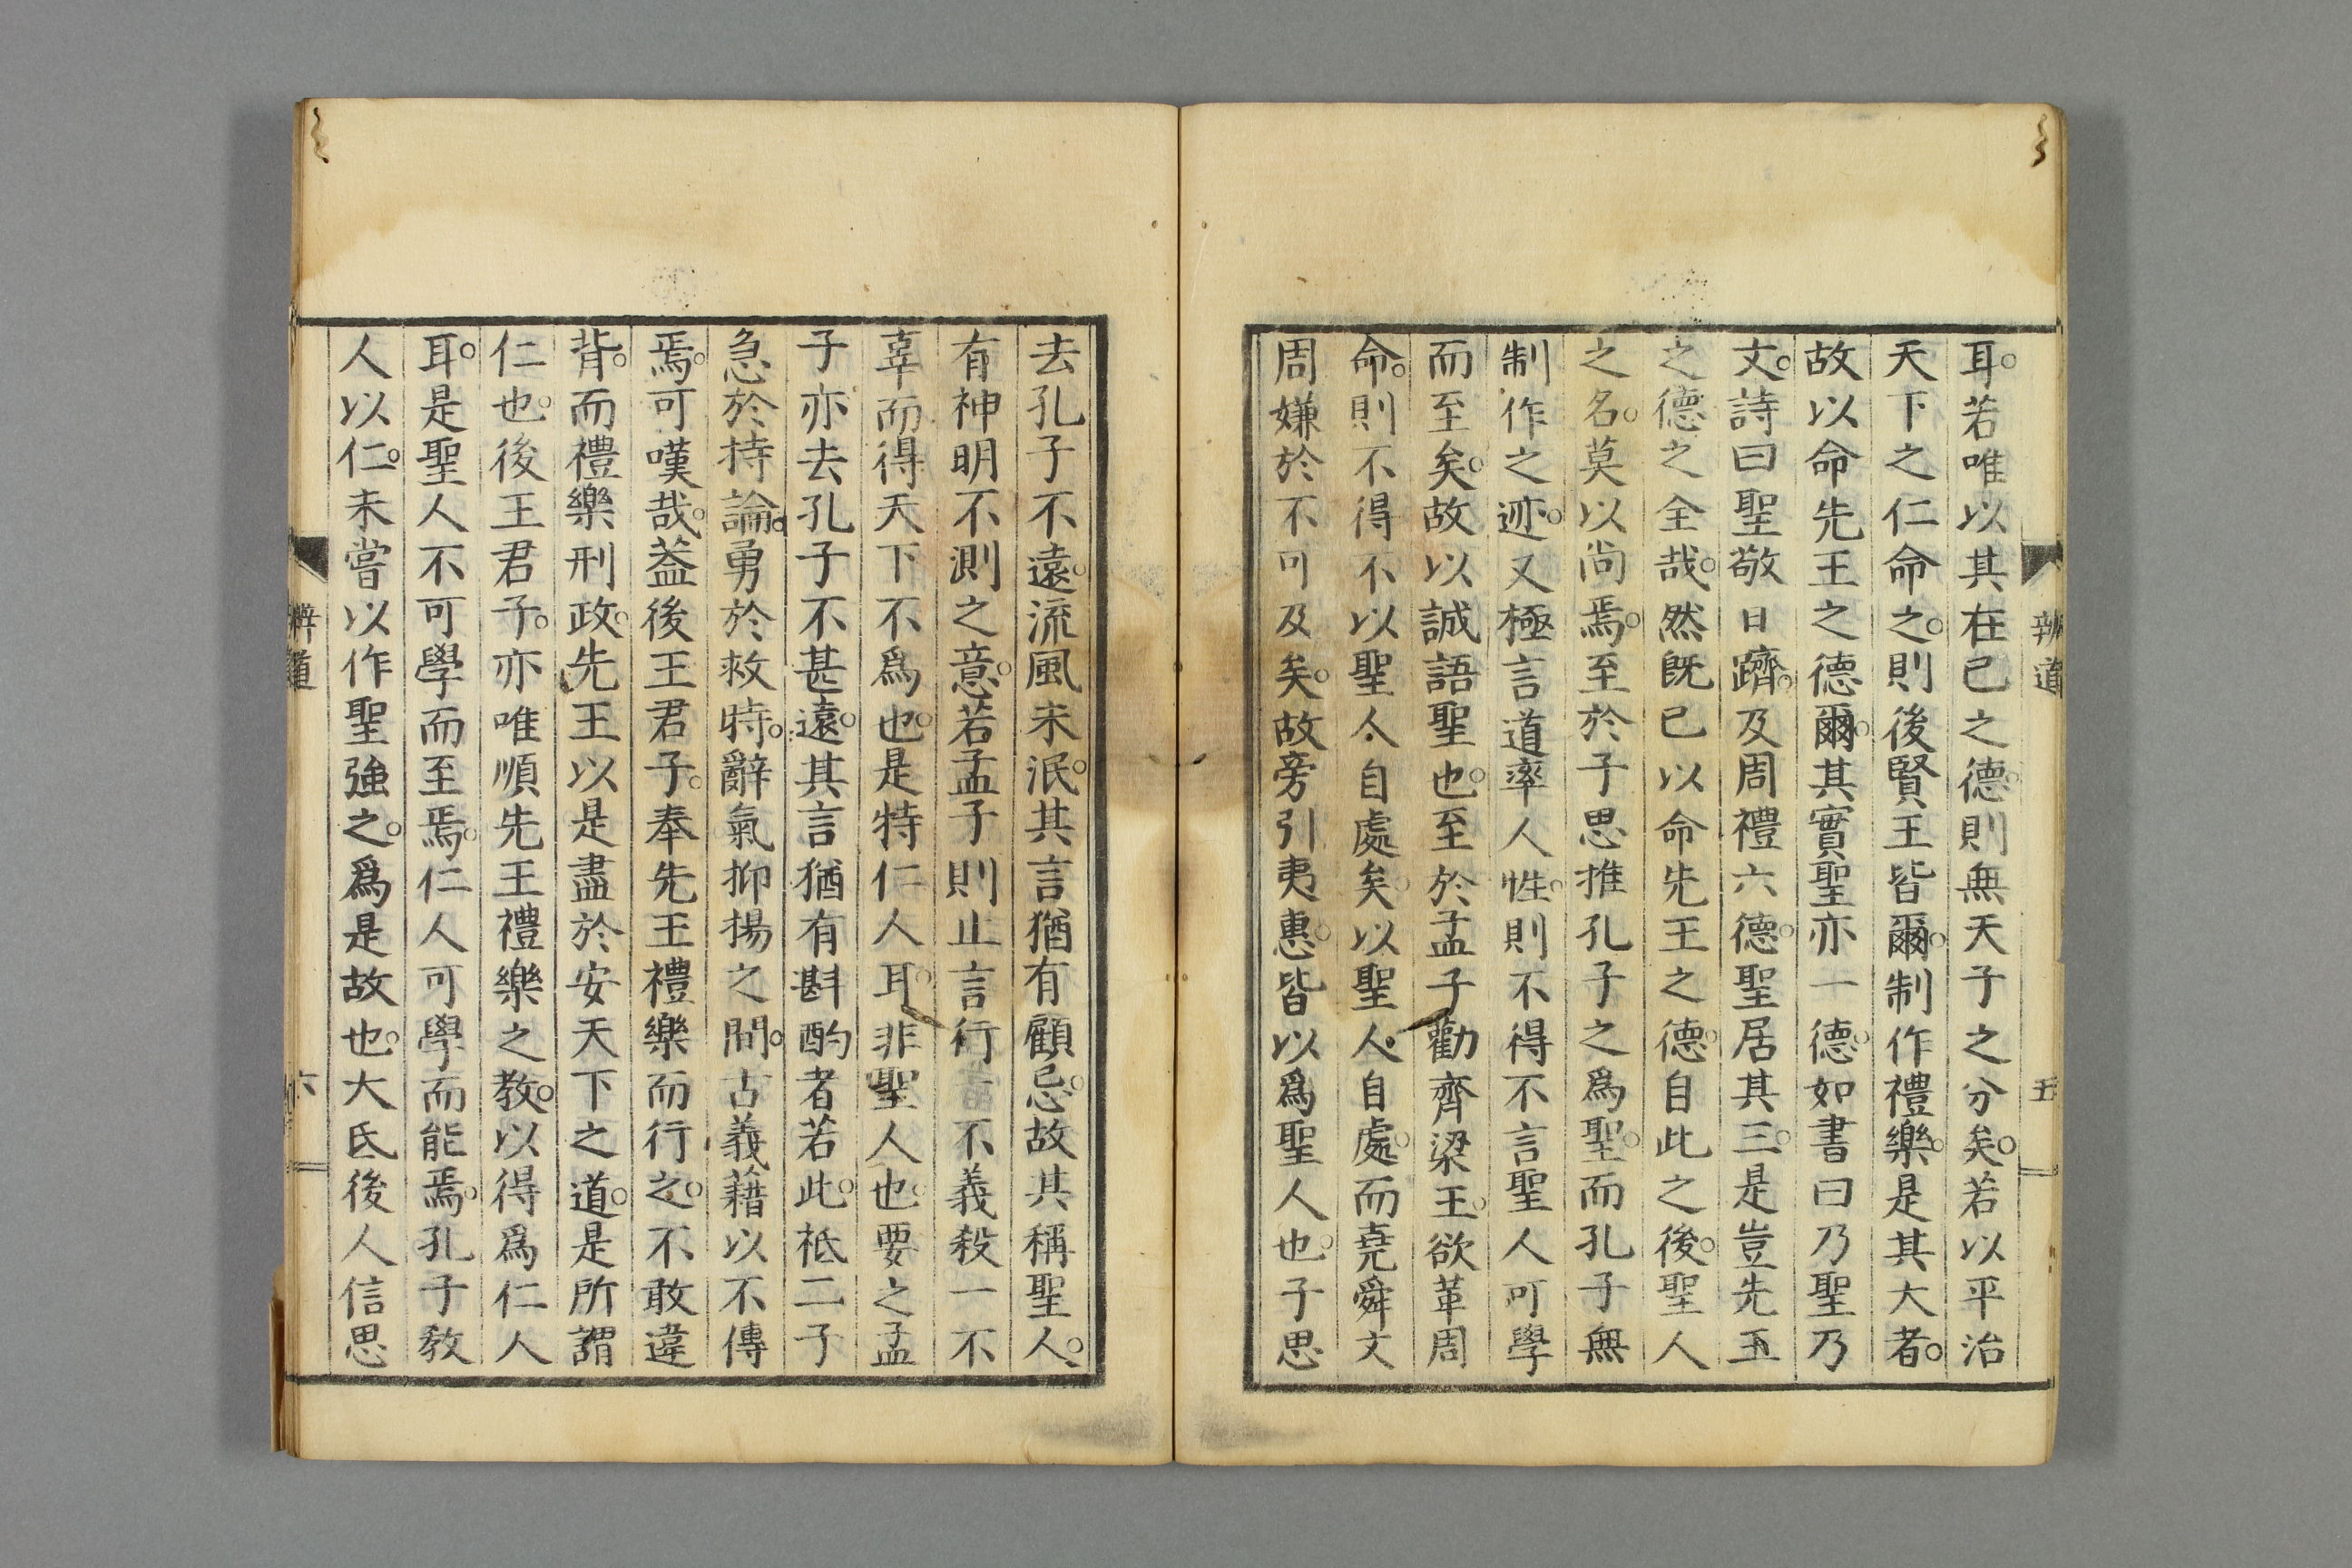 辨道
五
耳。若唯以其在己之德。則無天子之分矣。若以平治
天下之仁命之。則後賢王皆爾。制作禮樂。是其大者。
故以命先王之德爾。其實聖亦一德。如書曰乃聖乃
文。詩曰聖敬日躋。及周禮六德。聖居其三。是豈先王
之德之全哉。然既已以命先王之德。自此之後。聖人
之名。莫以尚焉。至於子思推孔子之爲聖。而孔子無
制作之迹。又極言道率人性。則不得不言聖人可學
而至矣。故以誠語聖也。至於孟子勸齊梁王。欲革周
命。則不得不以聖人自處矣。以聖人自處。而堯舜文
周嫌於不可及矣。故旁引夷惠。皆以爲聖人也。子思
去孔子不遠。流風未泯。其言猶有顧忌。故其稱聖人。
有神明不測之意。若孟子則止言行一不義殺一不
辜而得天下不爲也。是特仁人耳。非聖人也。要之孟
子亦去孔子不甚遠。其言猶有斟酌者若此。祗二子
急於持論。勇於救時。辭氣抑揚之間。古義藉以不傳
焉。可嘆哉。葢後王君子。奉先王禮樂而行之。不敢違
背。而禮樂刑政。先王以是盡於安天下之道。是所謂
仁也。後王君子。亦唯順先王禮樂之教。以得爲仁人
耳。是聖人不可學而至焉。仁人可學而能焉。孔子教
人以仁。未嘗以作聖強之。爲是故也。大氐後人信思
辨道
六